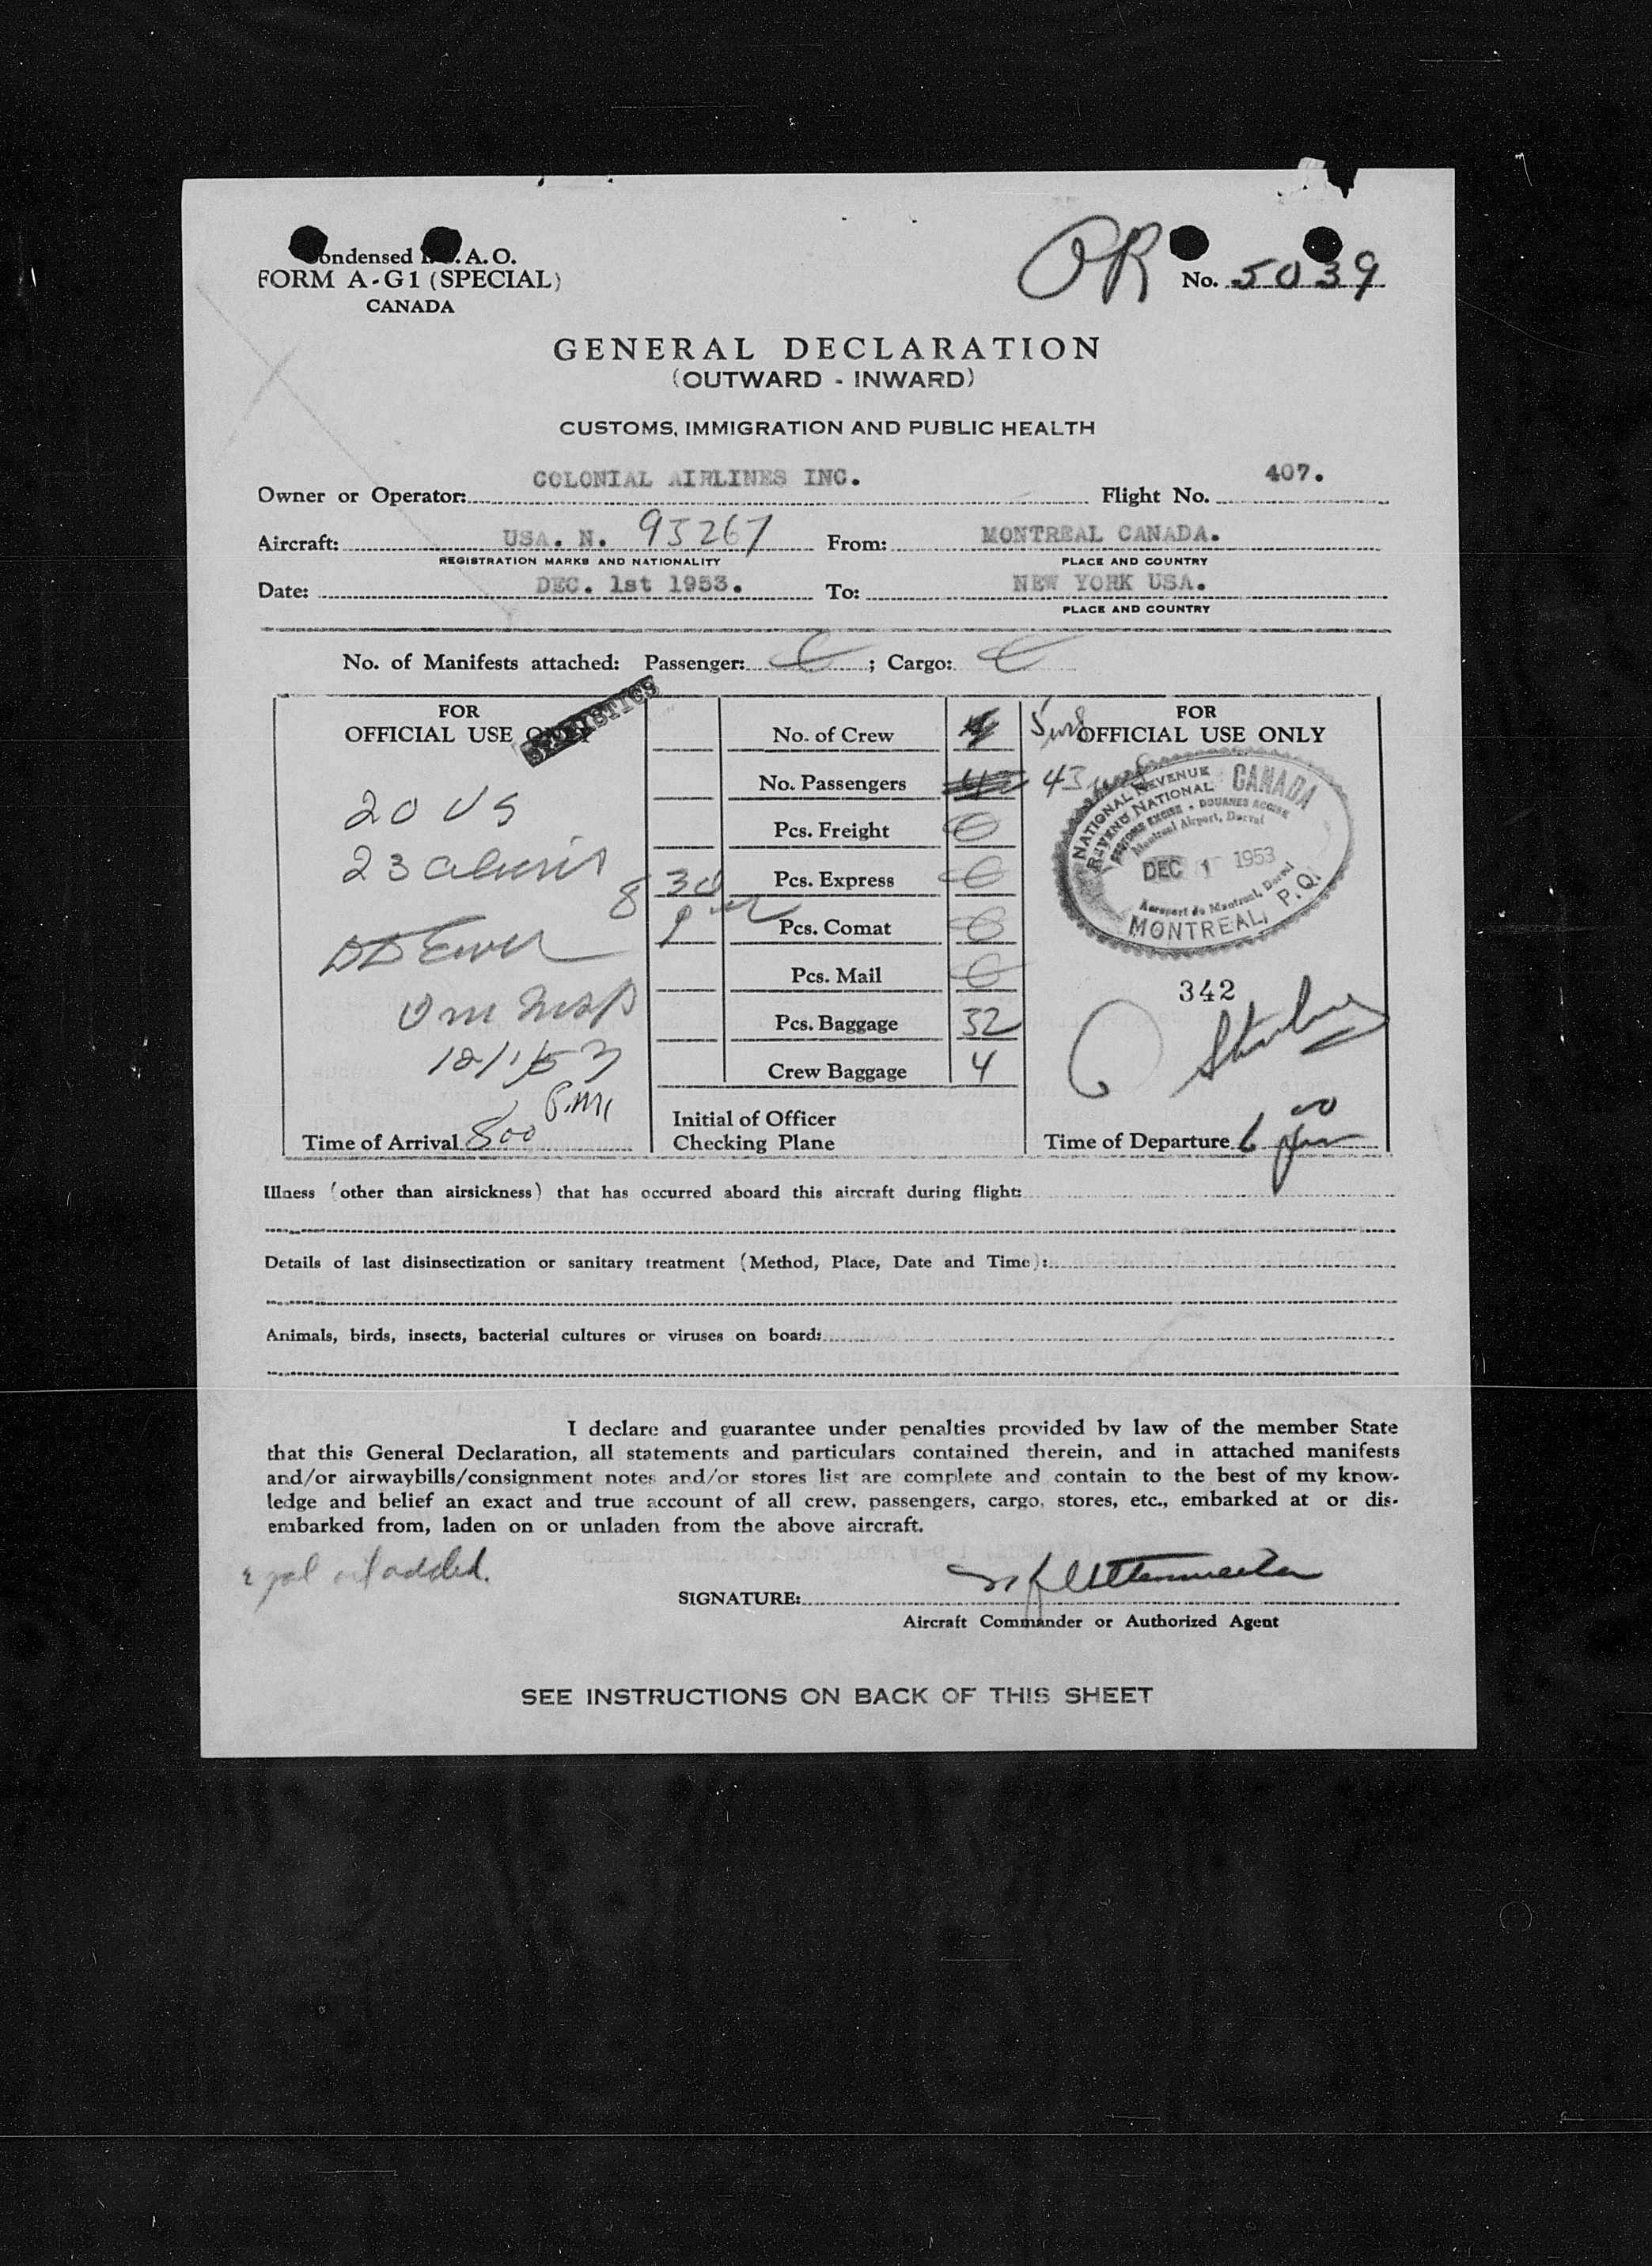 Condensed I. A. O.
FORM A-G1 (SPECIAL)
CANADA
OR
No. 5039
GENERAL DECLARATION
(OUTWARD - INWARD)
CUSTOMS, IMMIGRATION AND PUBLIC HEALTH
Owner or Operator: COLONIAL AIRLINES INC. Flight No. 407.
Aircraft: USA. N. 95267 From: MONTREAL CANADA.
REGISTRATION MARKS AND NATIONALITY PLACE AND COUNTRY
Date: DEC. 1st 1953. To: NEW YORK USA.
PLACE AND COUNTRY
No. of Manifests attached: Passenger: ; Cargo:
FOR
OFFICIAL USE ONLY
STATISTICS
20 US
23 aliens
8 30
12/1/53
P.M.
Time of Arrival 800
No. of Crew 4 5
No. Passengers 42 43
Pcs. Freight
Pcs. Express
Pcs. Comat
Pcs. Mail
Pcs. Baggage 32
Crew Baggage 4
Initial of Officer
Checking Plane
FOR
OFFICIAL USE ONLY
NATIONAL REVENUE CANADA
REVENU NATIONAL
CUSTOMS EXCISE - DOUANES ACCISE
Montreal Airport, Dorval
DEC 1 1953
Aeroport de Montreal, Dorval
MONTREAL, P.Q.
342
Time of Departure 6 00 pm
Illness (other than airsickness) that has occurred aboard this aircraft during flight:
Details of last disinsectization or sanitary treatment (Method, Place, Date and Time):
Animals, birds, insects, bacterial cultures or viruses on board:
I declare and guarantee under penalties provided by law of the member State
that this General Declaration, all statements and particulars contained therein, and in attached manifests
and/or airwaybills/consignment notes and/or stores list are complete and contain to the best of my know-
ledge and belief an exact and true account of all crew, passengers, cargo, stores, etc., embarked at or dis-
embarked from, laden on or unladen from the above aircraft.
added.
SIGNATURE:
Aircraft Commander or Authorized Agent
SEE INSTRUCTIONS ON BACK OF THIS SHEET